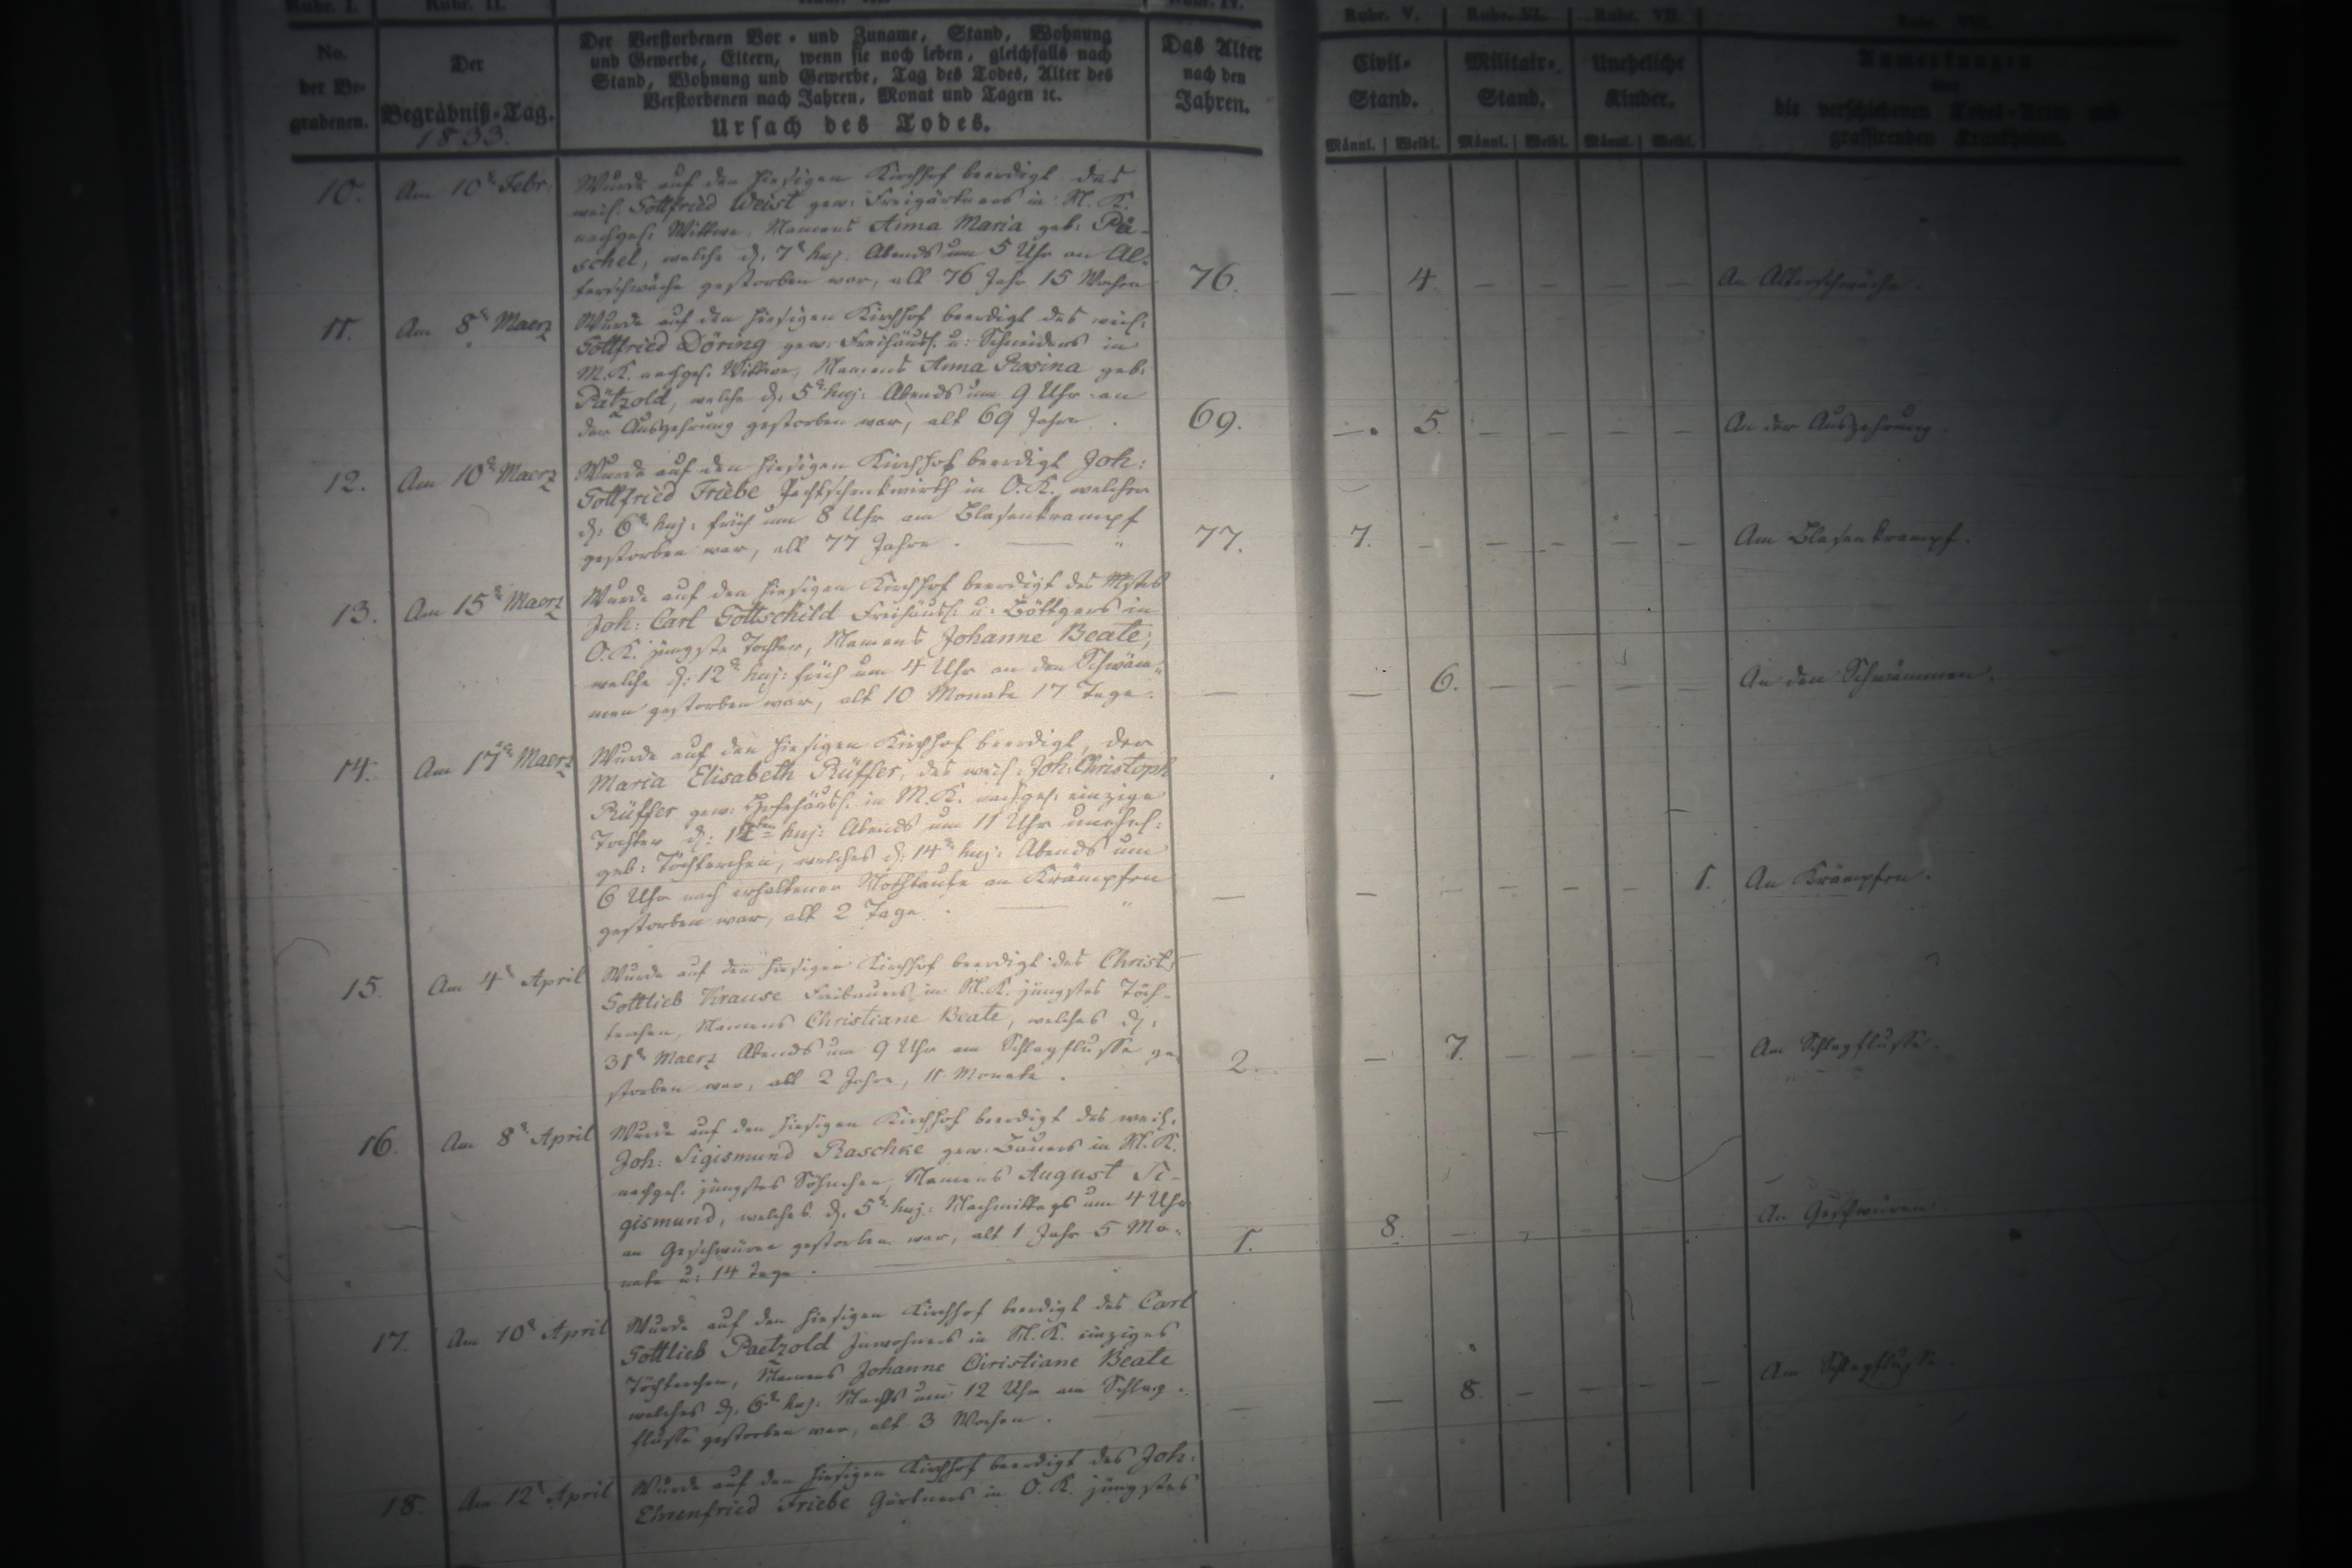 Rubr. I. Rubr. II. Rubr. IV. Rubr. V. Rubr. VI. Rubr. VII. Rubr. VIII.
No. der Be- grabenen.
Der Begräbniß-Tag.
1833.
Der Verstorbenen Vor- und Zuname, Stand, Wohnung
und Gewerbe, Eltern, wenn sie noch leben, gleichfalls nach
Stand, Wohnung und Gewerbe, Tag des Todes, Alter des
Verstorbenen nach Jahren, Monat und Tagen ꝛc.
Ursach des Todes.
Das Alter
nach den
Jahren.
Civil-
Stand.
Männl. Weibl.
Militair-
Stand.
Männl. Weibl.
Uneheliche
Kinder.
Männl. Weibl.
Anmerkungen
über
die verschiedenen Todes-Arten und
grassirenden Krankheiten.
10. Am 10t Febr:
Wurde auf den hiesigen Kirchhof beerdigt des
weil: Gottfried Weist gew: Freigärtners in N. K.
nachgel: Wittwe, Namens Anna Maria geb: Pä-
schel, welche d: 7t huj: Abends um 5 Uhr an Al-
terschwäche gestorben war, alt 76 Jahr 15 Wochen
76. — 4. — — — — An Alterschwäche.
11. Am 8t Maerz
Wurde auf den hiesigen Kirchhof beerdigt des weil:
Gottfried Döring gew: Freihäusl: u: Schneiders in
M. K. nachgel: Wittwe, Namens Anna Rosina geb:
Pätzold, welche d: 5t huj: Abends um 9 Uhr an
der Auszehrung gestorben war, alt 69 Jahre.
69. — 5. — — — — An der Auszehrung
12. Am 10t Maerz
Wurde auf den hiesigen Kirchhof beerdigt Joh:
Gottfried Friebe Pachtschenkwirth in O. K. welcher
d: 6t huj: früh um 8 Uhr am Blasenkrampf
gestorben war, alt 77 Jahre. — "
77. 7. — — — — — Am Blasenkrampf.
13. Am 15t Maerz
Wurde auf den hiesigen Kirchhof beerdigt des Mstrs
Joh: Carl Gottschild Freihäusl: u: Böttgers in
O. K. jüngste Tochter, Namens Johanne Beate,
welche d: 12t huj: früh um 4 Uhr an den Schwäm-
men gestorben war, alt 10 Monate 17 Tage.
— — 6. — — — — An den Schwämmen.
14. Am 17t Maerz
Wurde auf den hiesigen Kirchhof beerdigt, der
Maria Elisabeth Rüffer, des weil: Joh: Christoph
Rüffer gew: Hofehäusl: in M. K. nachgel: einzige
Tochter d: 12ten huj: Abends um 11 Uhr unehel:
geb: Töchterchen, welches d: 14t huj: Abends um
6 Uhr nach erhaltener Nothtaufe an Krämpfen
gestorben war, alt 2 Tage. — "
— — — — — — 1. An Krämpfen.
15. Am 4t April
Wurde auf den hiesigen Kirchhof beerdigt des Christ:
Gottlieb Krause Freibauers in N. K. jüngstes Töch-
terchen, Namens Christiane Beate, welches d:
31t Maerz Abends um 9 Uhr am Schlagflusse ge-
storben war, alt 2 Jahre, 11 Monate.
2. — 7. — — — — Am Schlagflusse.
16. Am 8t April
Wurde auf den hiesigen Kirchhof beerdigt des weil:
Joh: Sigismund Raschke gew: Bauers in N. K.
nachgel: jüngstes Söhnchen, Namens August Si-
gismund, welches d: 5t huj: Nachmittags um 4 Uhr
an Geschwüren gestorben war, alt 1 Jahr 5 Mo-
nate u: 14 Tage.
1. 8. — — An Geschwüren.
17. Am 10t April
Wurde auf den hiesigen Kirchhof beerdigt des Carl
Gottlieb Paetzold Inwohners in N. K. einziges
Töchterchen, Namens Johanne Christiane Beate
welches d: 6t huj: Nachts um 12 Uhr am Schlag-
flusse gestorben war, alt 3 Wochen.
— — 8. — — — — Am Schlagflusse.
18. Am 12t April
Wurde auf den hiesigen Kirchhof beerdigt des Joh:
Ehrenfried Friebe Gärtners in O. K. jüngstes